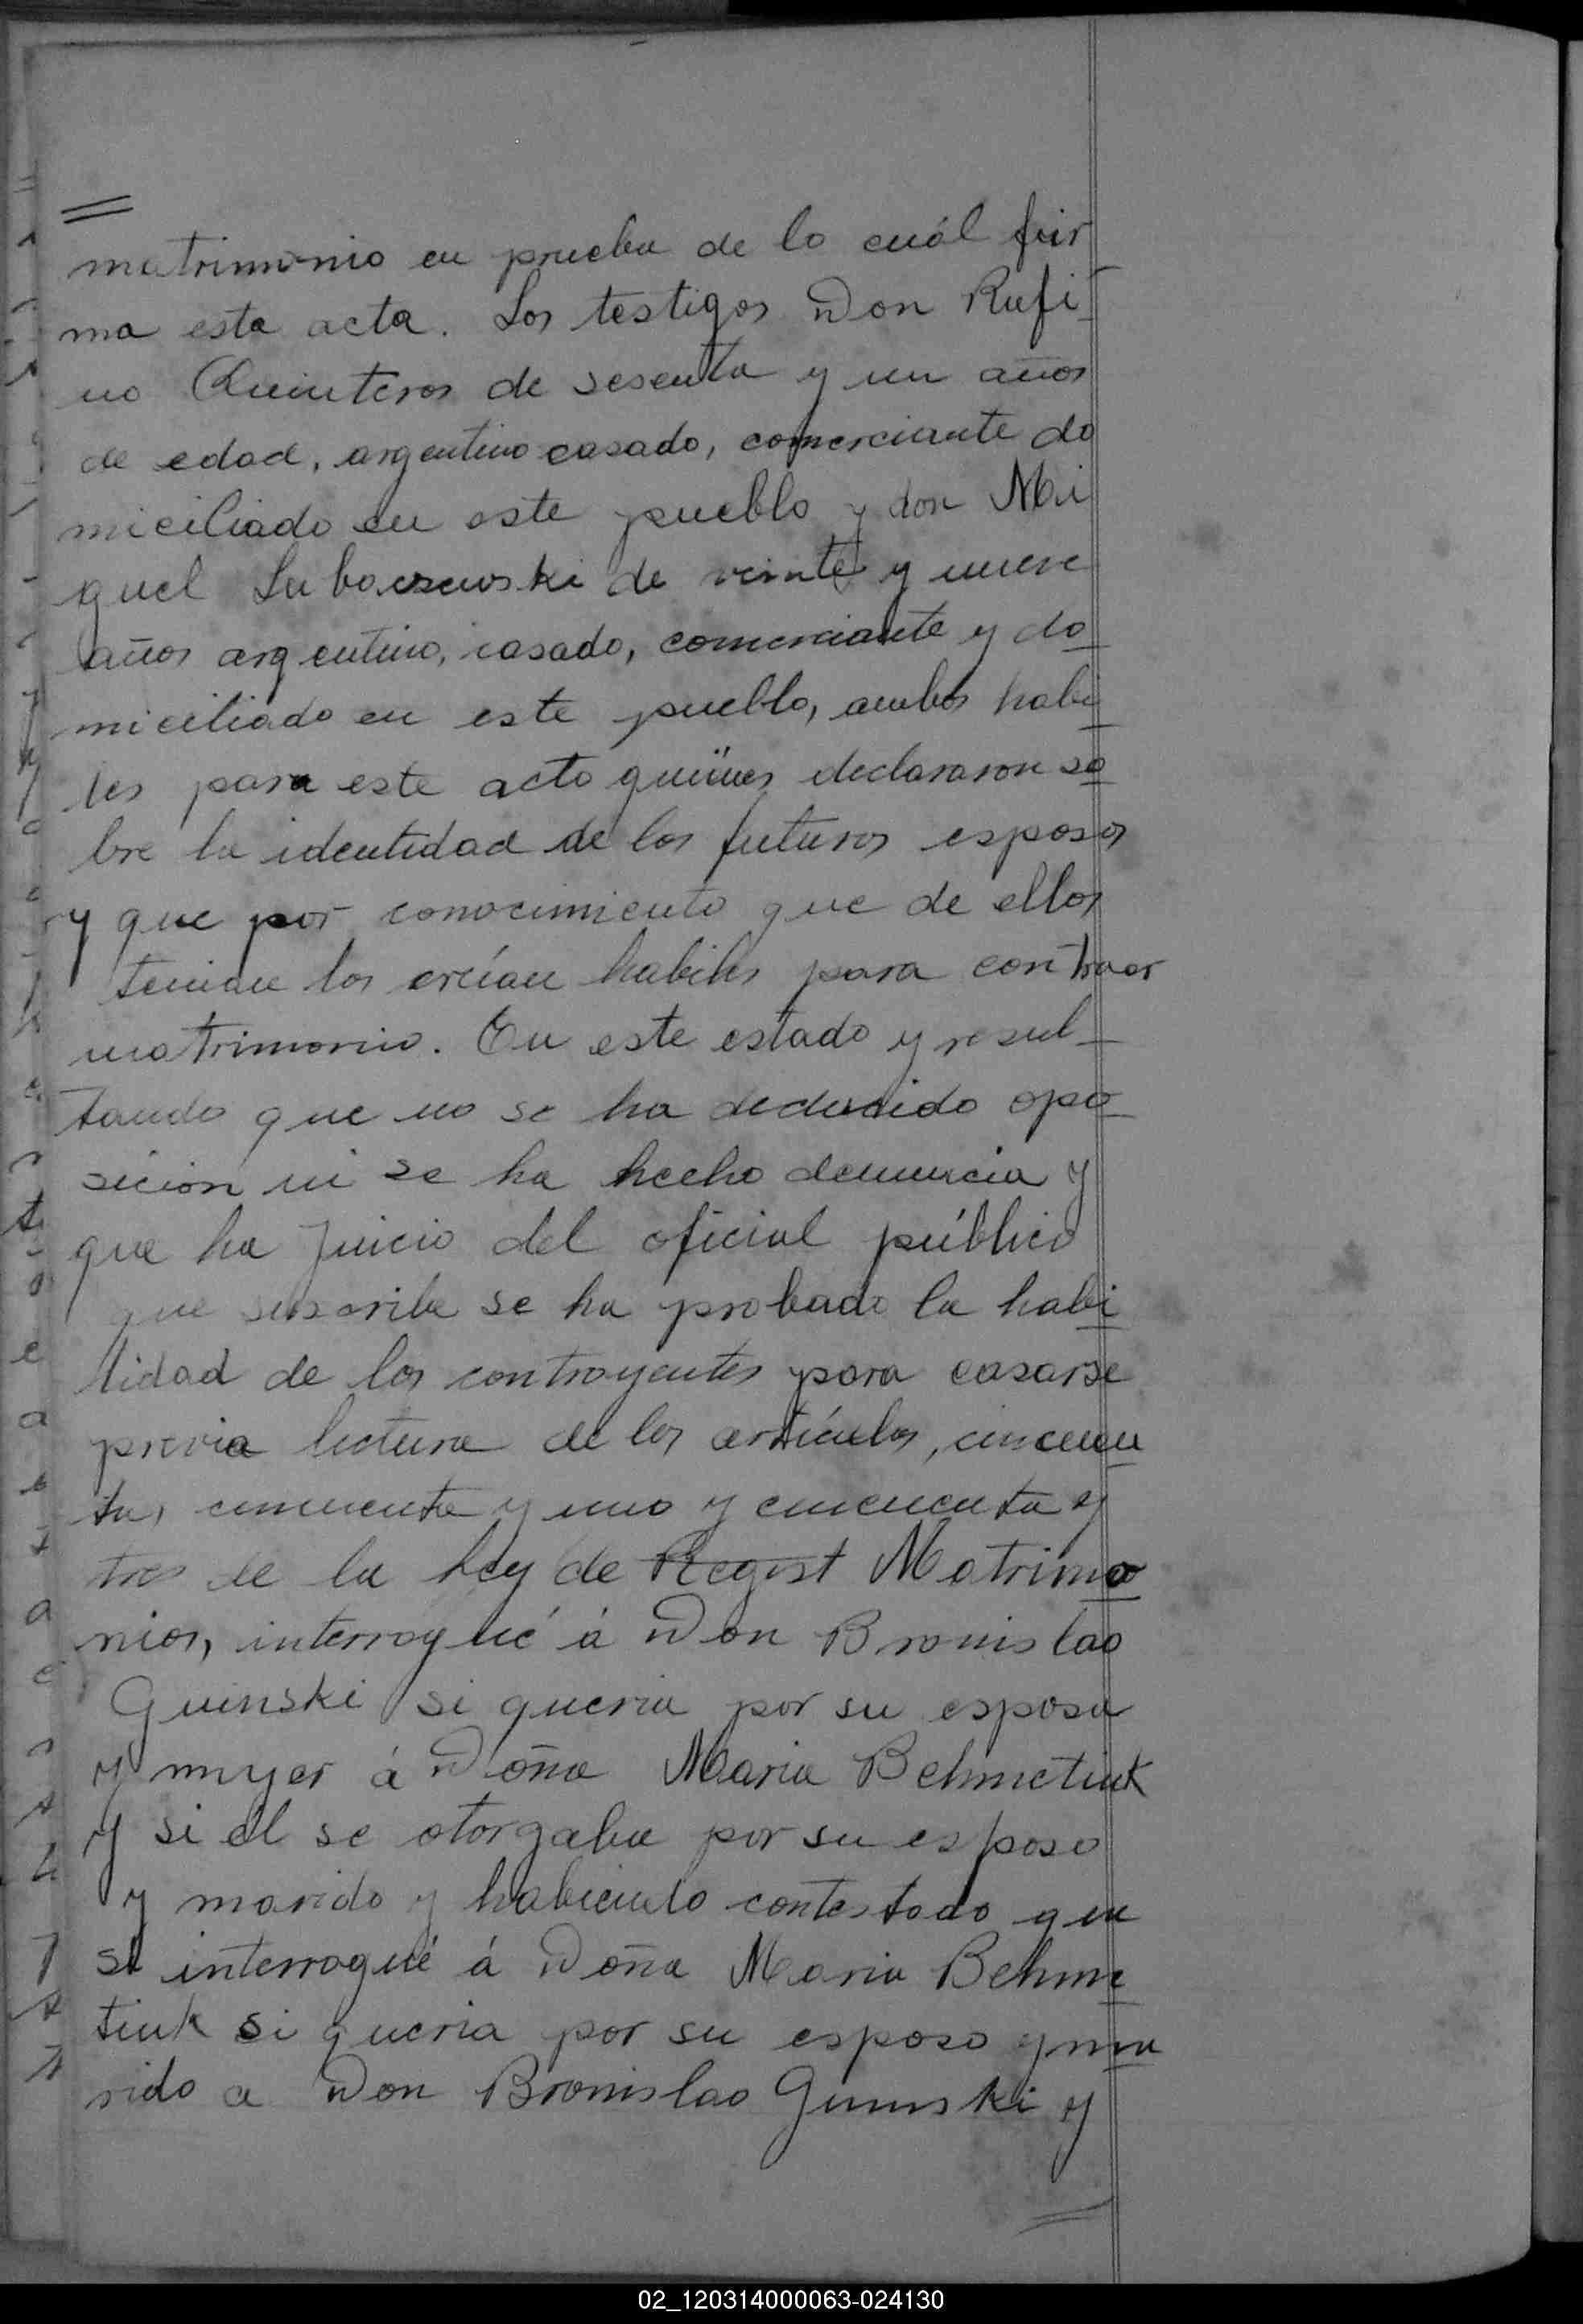 matrimonio en prueba de lo cuál fir
ma esta acta. Los testigos Don Rufi-
no Quinteros de sesenta y un años
de edad, argentino casado, comerciante do
miciliado en este pueblo y don Mi
guel Lubaczewski de veinte y nueve
años argentino, casado, comerciante y do
miciliado en este pueblo, ambos habi
les para este acto quiénes declararon so
bre la identidad de los futuros esposos
y que por conocimiento que de ellos
tenian los creían habiles para contraer
matrimonio. En este estado y resul-
tando que no se ha deducido opo
sicion ni se ha hecho denuncia y
que ha juicio del oficial público
que suscribe se ha probado la habi
lidad de los contrayentes para casarse
previa lectura de los artículos, cincuen
ta, cincuenta y uno y cincuenta y
tres de la Ley de Regist Matrimo
nios, interrogué á Don Bronislao
Guinski si queria por su esposa
y mujer á Doña Maria Behmetiuk
y si él se otorgaba por su esposo
y marido y habiendo contestado que
si interrogué á Doña Maria Behme
tiuk si queria por su esposo y ma
rido a Don Bronislao Guinski y
02_120314000063-024130